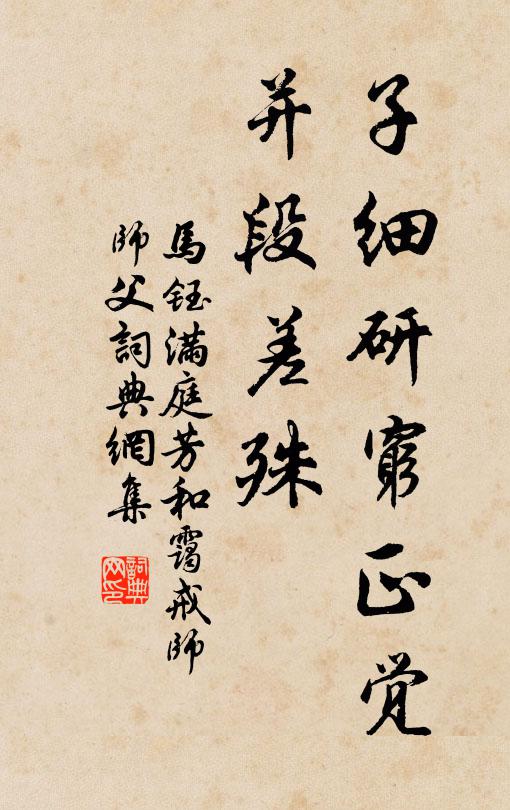 子细研窮正觉
并段差殊
馬鈺满庭芳和霭戒師
師父詞典網集
詞典網印